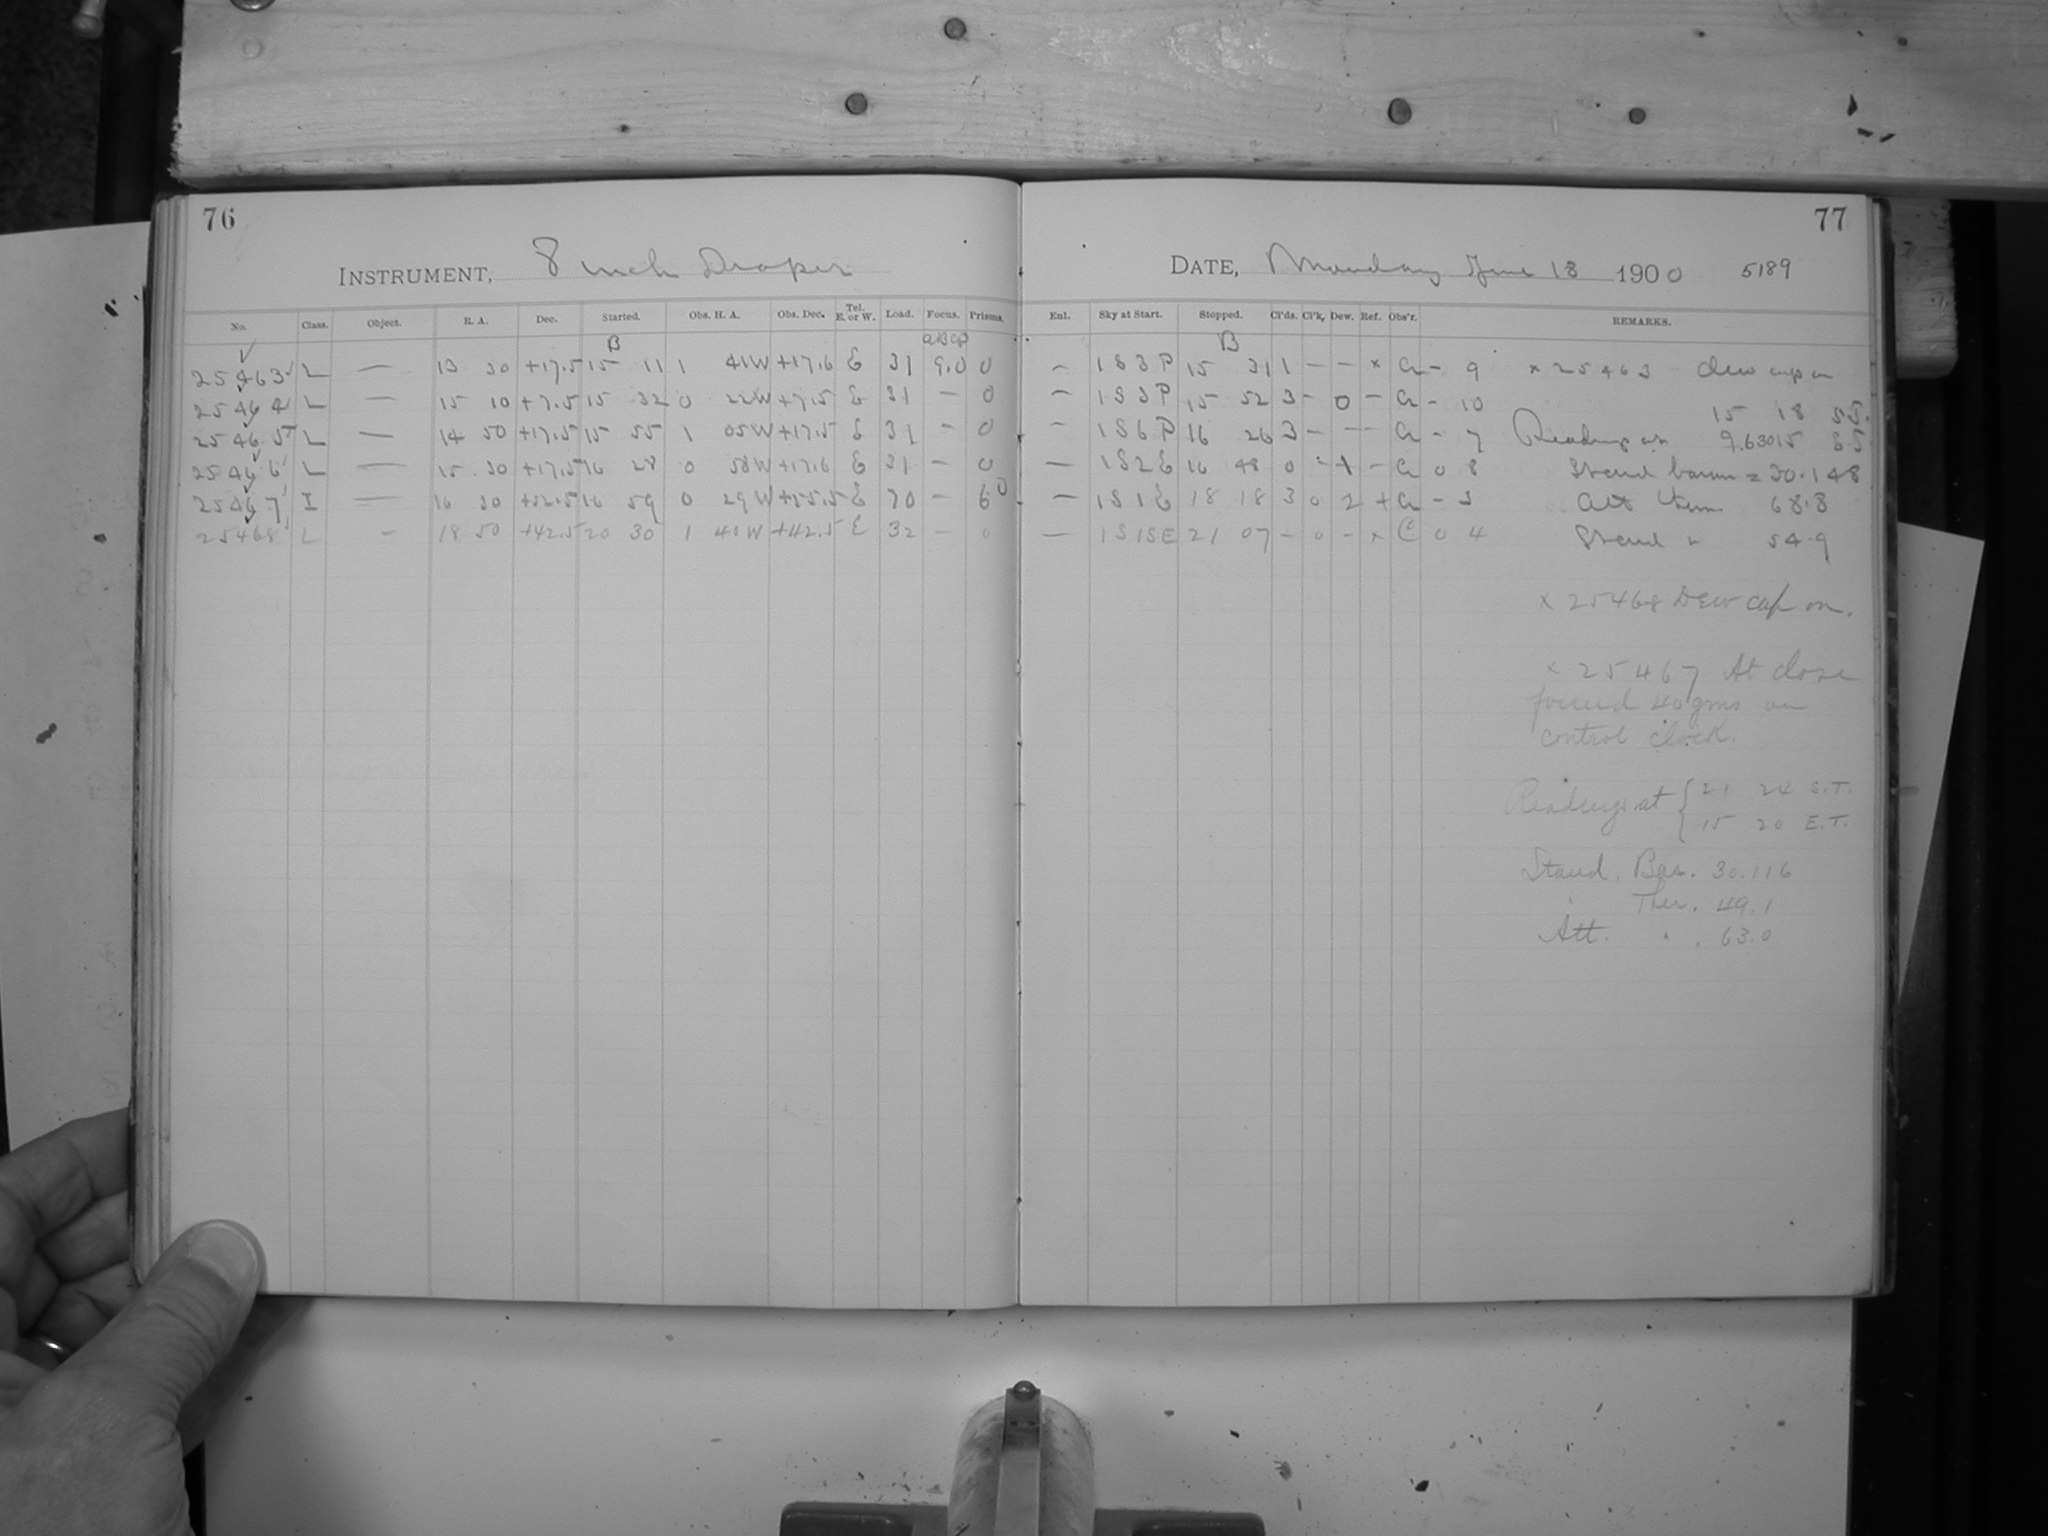 76
INSTRUMENT, 8 inch Draper
No. Class. Object. R. A. Dec. Started. Obs. H. A. Obs. Dec. Tel. E. or W. Load. Focus. Prisms.
B
25463 L — 13 30 +17.5 15 11 1 41W +17.6 E 31 9.0 0
25464 L — 15 10 +7.5 15 32 0 22W +7.5 E 31 — 0
25465 L — 14 50 +17.5 15 55 1 05W +17.5 E 31 — 0
25466 L — 15 30 +17.5 16 28 0 58W +17.6 E 31 — 0
25467 I — 16 30 16 59 0 29W +55.5 E 70 — 6
25468 L — 18 50 +42.5 20 30 1 40W +42.5 E 32 — 0
77
DATE, Monday June 18 1900 5189
Enl. Sky at Start. Stopped. Cl'ds. Cl'k, Dew. Ref. Obs'r. REMARKS.
B
— 1S3P 15 31 1 — — × — 9 × 25463 Dew cap on
— 1S3P 15 52 3 — 0 — — 10 15 18
— 1S6P 16 26 3 — — — — 7 Readings at 9.63015
— 1S2E 16 48 0 - + — 0 8 Stand barom = 30.148
— 1S1E 18 18 3 0 2 + — 3 Att therm 68.8
— 1S1SE 21 07 — 0 — × C 0 4 Stand " 54.9
× 25468 Dew cap on.
× 25467 At close
found 40 gms on
control clock.
Readings at { 21 24 S.T.
15 20 E.T.
Stand. Bar. 30.116
" Ther. 49.1
Att. " . 63.0